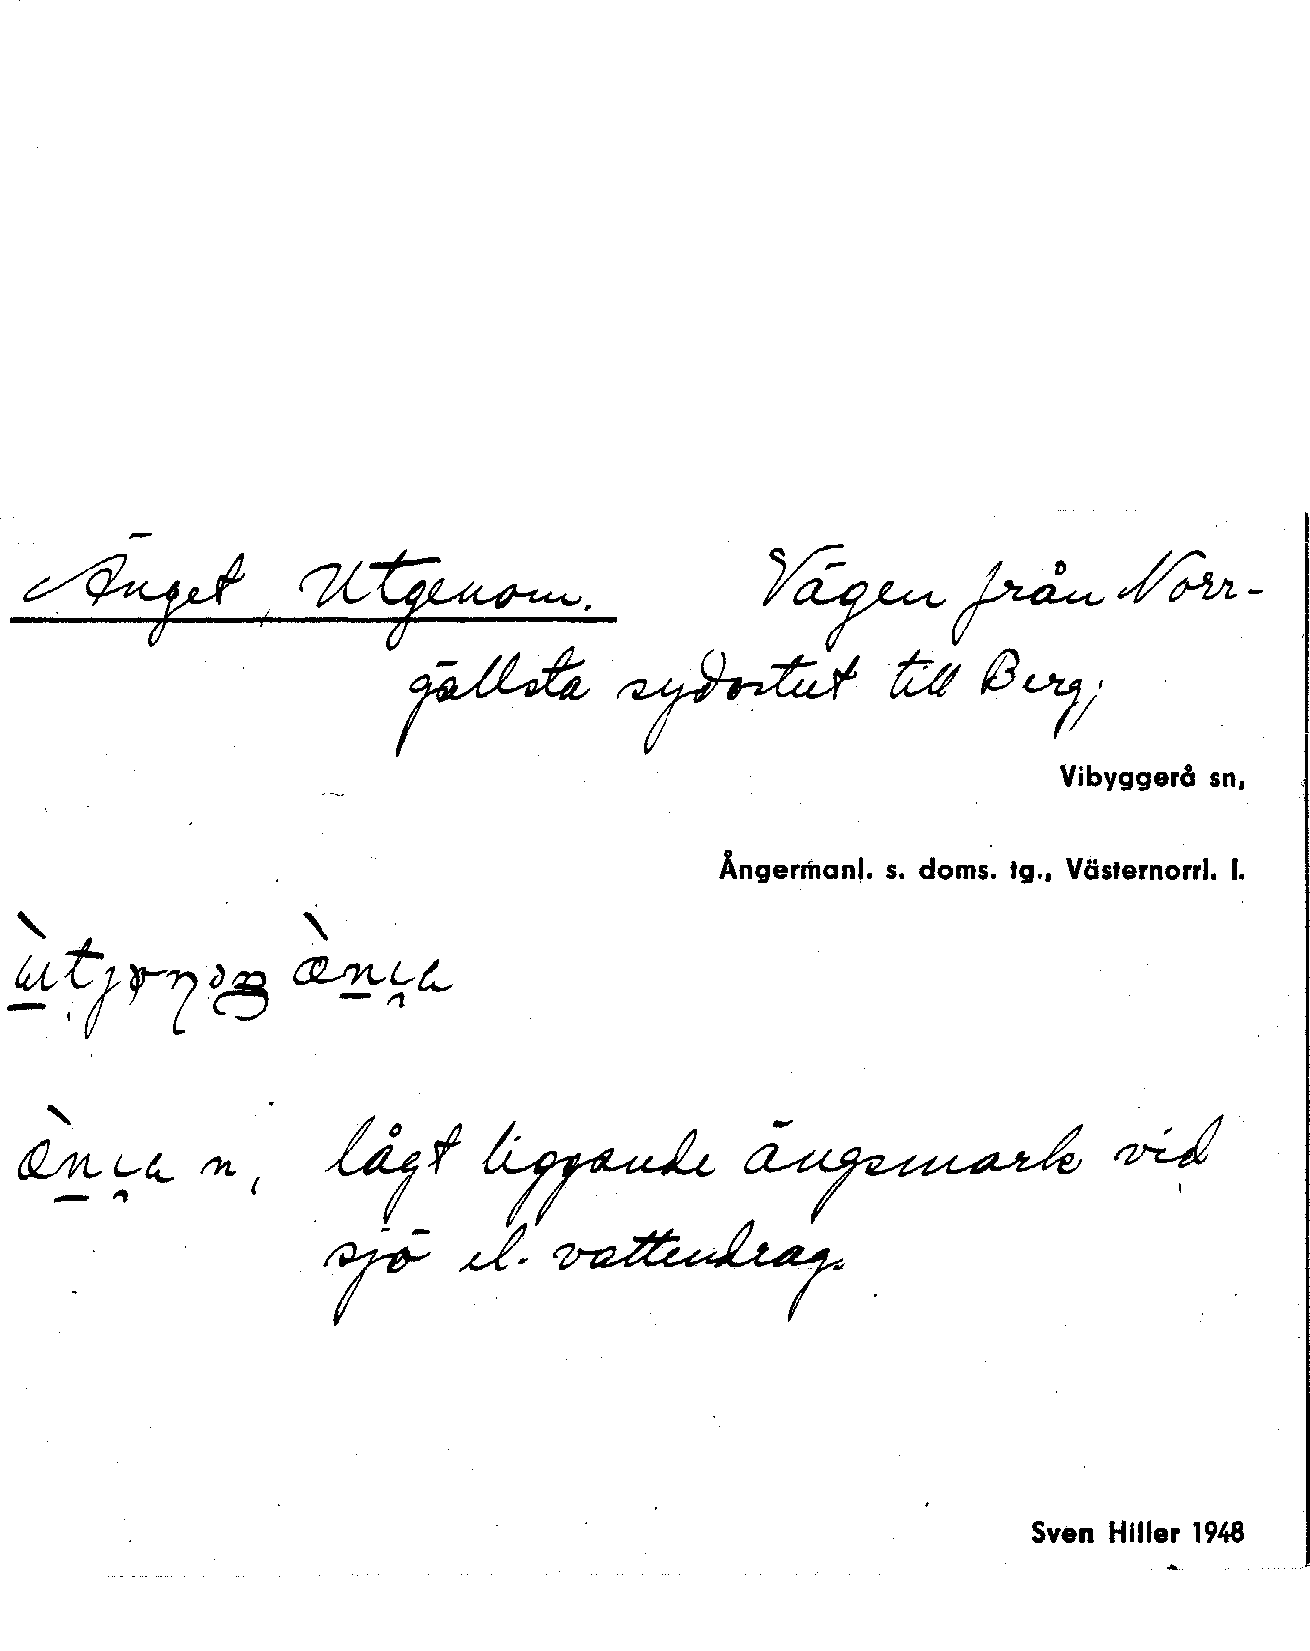 Änget, Utgenom. Vägen från Norr-
gällsta sydostut till Berg;
Vibyggerå sn,
Ångermanl. s. doms. tg., Västernorrl. l.
n, lågt liggande ängsmark vid
sjö el. vattendrag.
Sven Hiller 1948